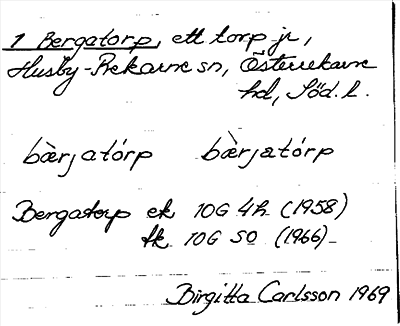 1 Bergatorp, ett torp ju,
Husby-Rekarne sn, Österrekarne
hd, Söd. l.
bæ̀rjatórp bæ̀rjatórp
Bergatorp ek 10G 4h (1958)
tk 10G SO (1966)
Birgitta Carlsson 1969